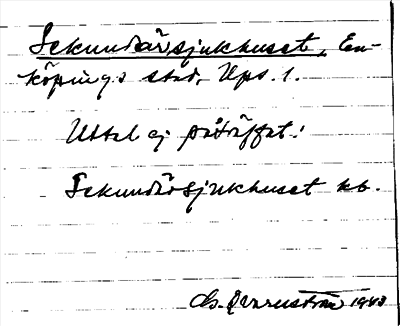 Sekundärsjukhuset, En-
köpings stad, Ups. l.
Uttal ej påträffat.
Sekundärsjukhuset kb.
1943